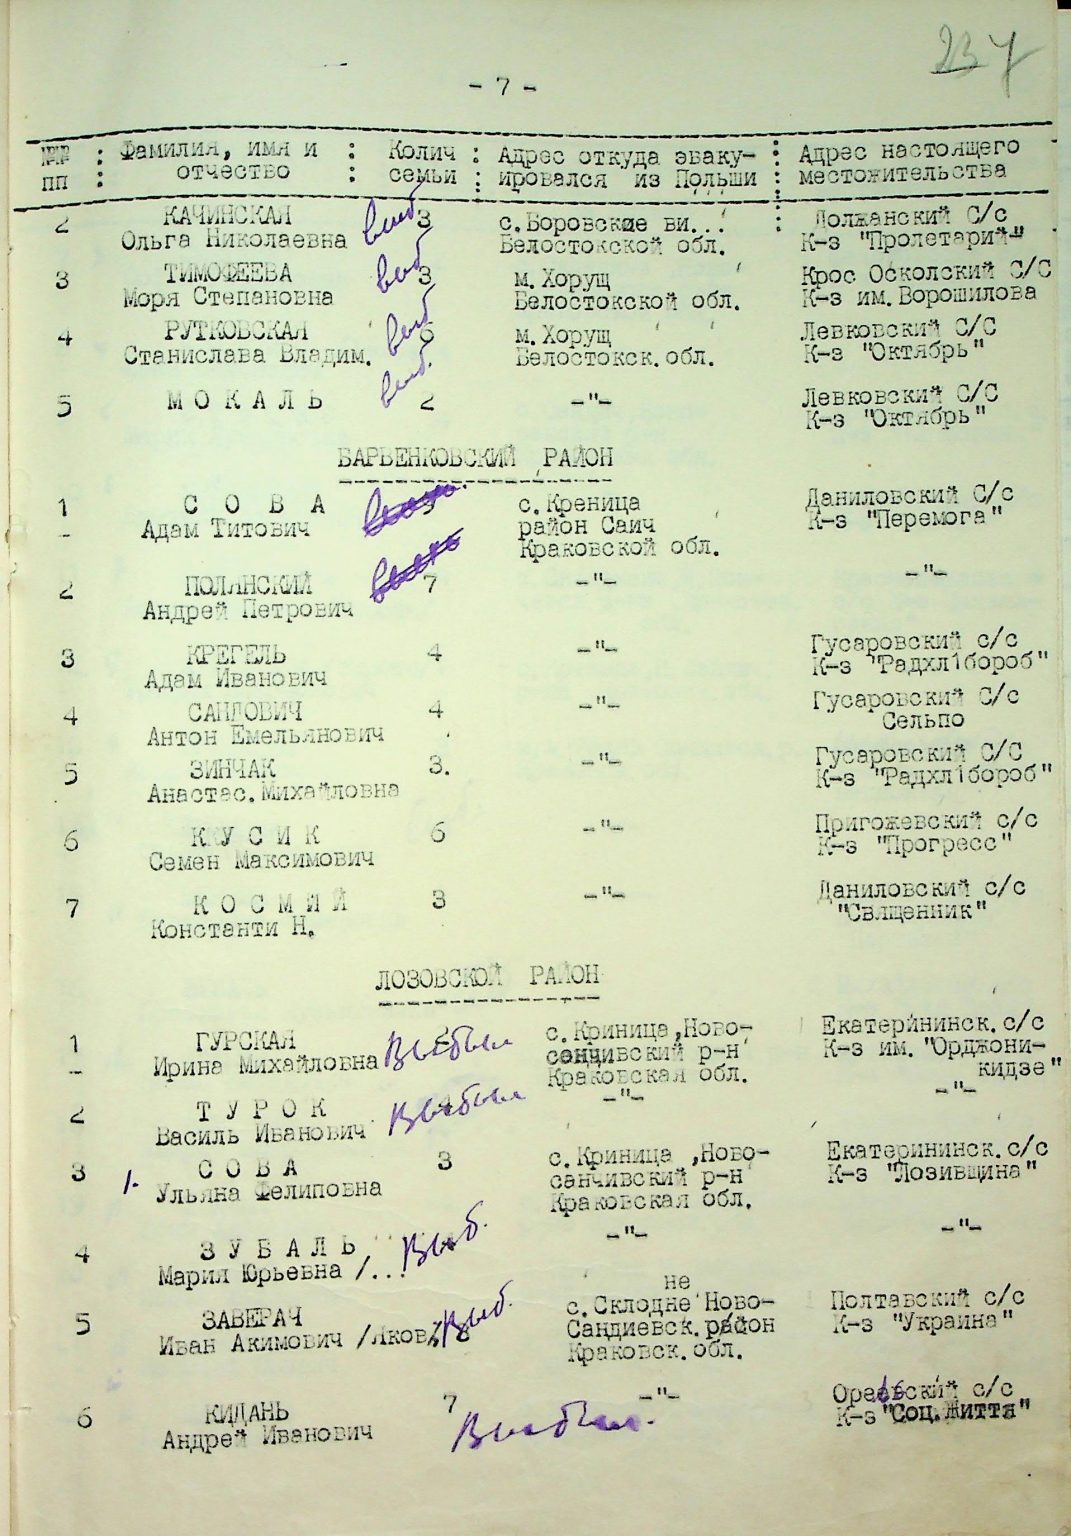 237
- 7 -
№№ : Фамилия, имя и : Колич : Адрес откуда эваку- : Адрес настоящего
пп : отчество : семьи : ировался из Польши : местожительства
2 КАЧИНСКАЯ выб 3 с.Боровские ви... Должанский С/с
Ольга Николаевна Белостокской обл. К-з "Пролетарий"
3 ТИМОФЕЕВА выб 3 м.Хорущ Крос Осколский С/С
Моря Степановна Белостокской обл. К-з им.Ворошилова
4 РУТКОВСКАЯ выб 6 м.Хорущ Левковский С/С
Станислава Владим. Белостокск.обл. К-з "Октябрь"
5 М О К А Л Ь выб. 2 -"- Левковский С/С
К-з "Октябрь"
БАРВЕНКОВСКИЙ РАЙОН
1 С О В А с.Креница Даниловский С/с
Адам Титович район Саич К-з "Перемога"
Краковской обл.
2 ПОЛЯНСКИЙ 7 -"- -"-
Андрей Петрович
3 КРЕГЕЛЬ 4 -"- Гусаровский с/с
Адам Иванович К-з "Радхл1бороб"
4 САНДОВИЧ 4 -"- Гусаровский С/с
Антон Емельянович Сельпо
5 ЗИНЧАК 3. -"- Гусаровский С/С
Анастас.Михайловна К-з "Радхл1бороб"
6 К У С И К 6 -"- Пригожевский с/с
Семен Максимович К-з "Прогресс"
7 К О С М И Й 3 -"- Даниловский с/с
Константи Н. "Священник"
ЛОЗОВСКОЙ РАЙОН
1 ГУРСКАЯ Выбыл с.Криница,Ново- Екатеринінск.с/с
Ирина Михайловна санчивский р-н К-з им."Орджони-
Краковская обл. кидзе"
2 Т У Р О К Выбыл -"- -"-
Василь Иванович
3 С О В А 3 с.Криница ,Ново- Екатерининск.с/с
1. Ульяна Фелиповна санчивский р-н К-з "Лозивщина"
Краковская обл.
4 З У Б А Л Ь Выб. -"- -"-
Мария Юрьевна /...
не
5 ЗАВЕРАЧ Выб. с.Склодне Ново- Полтавский с/с
Иван Акимович /Яков/ Сандиевск.район К-з "Украина"
Краковск.обл.
6 КИДАНЬ 7 -"- с/с
Андрей Иванович Выбыл. К-з "Соц.Життя"